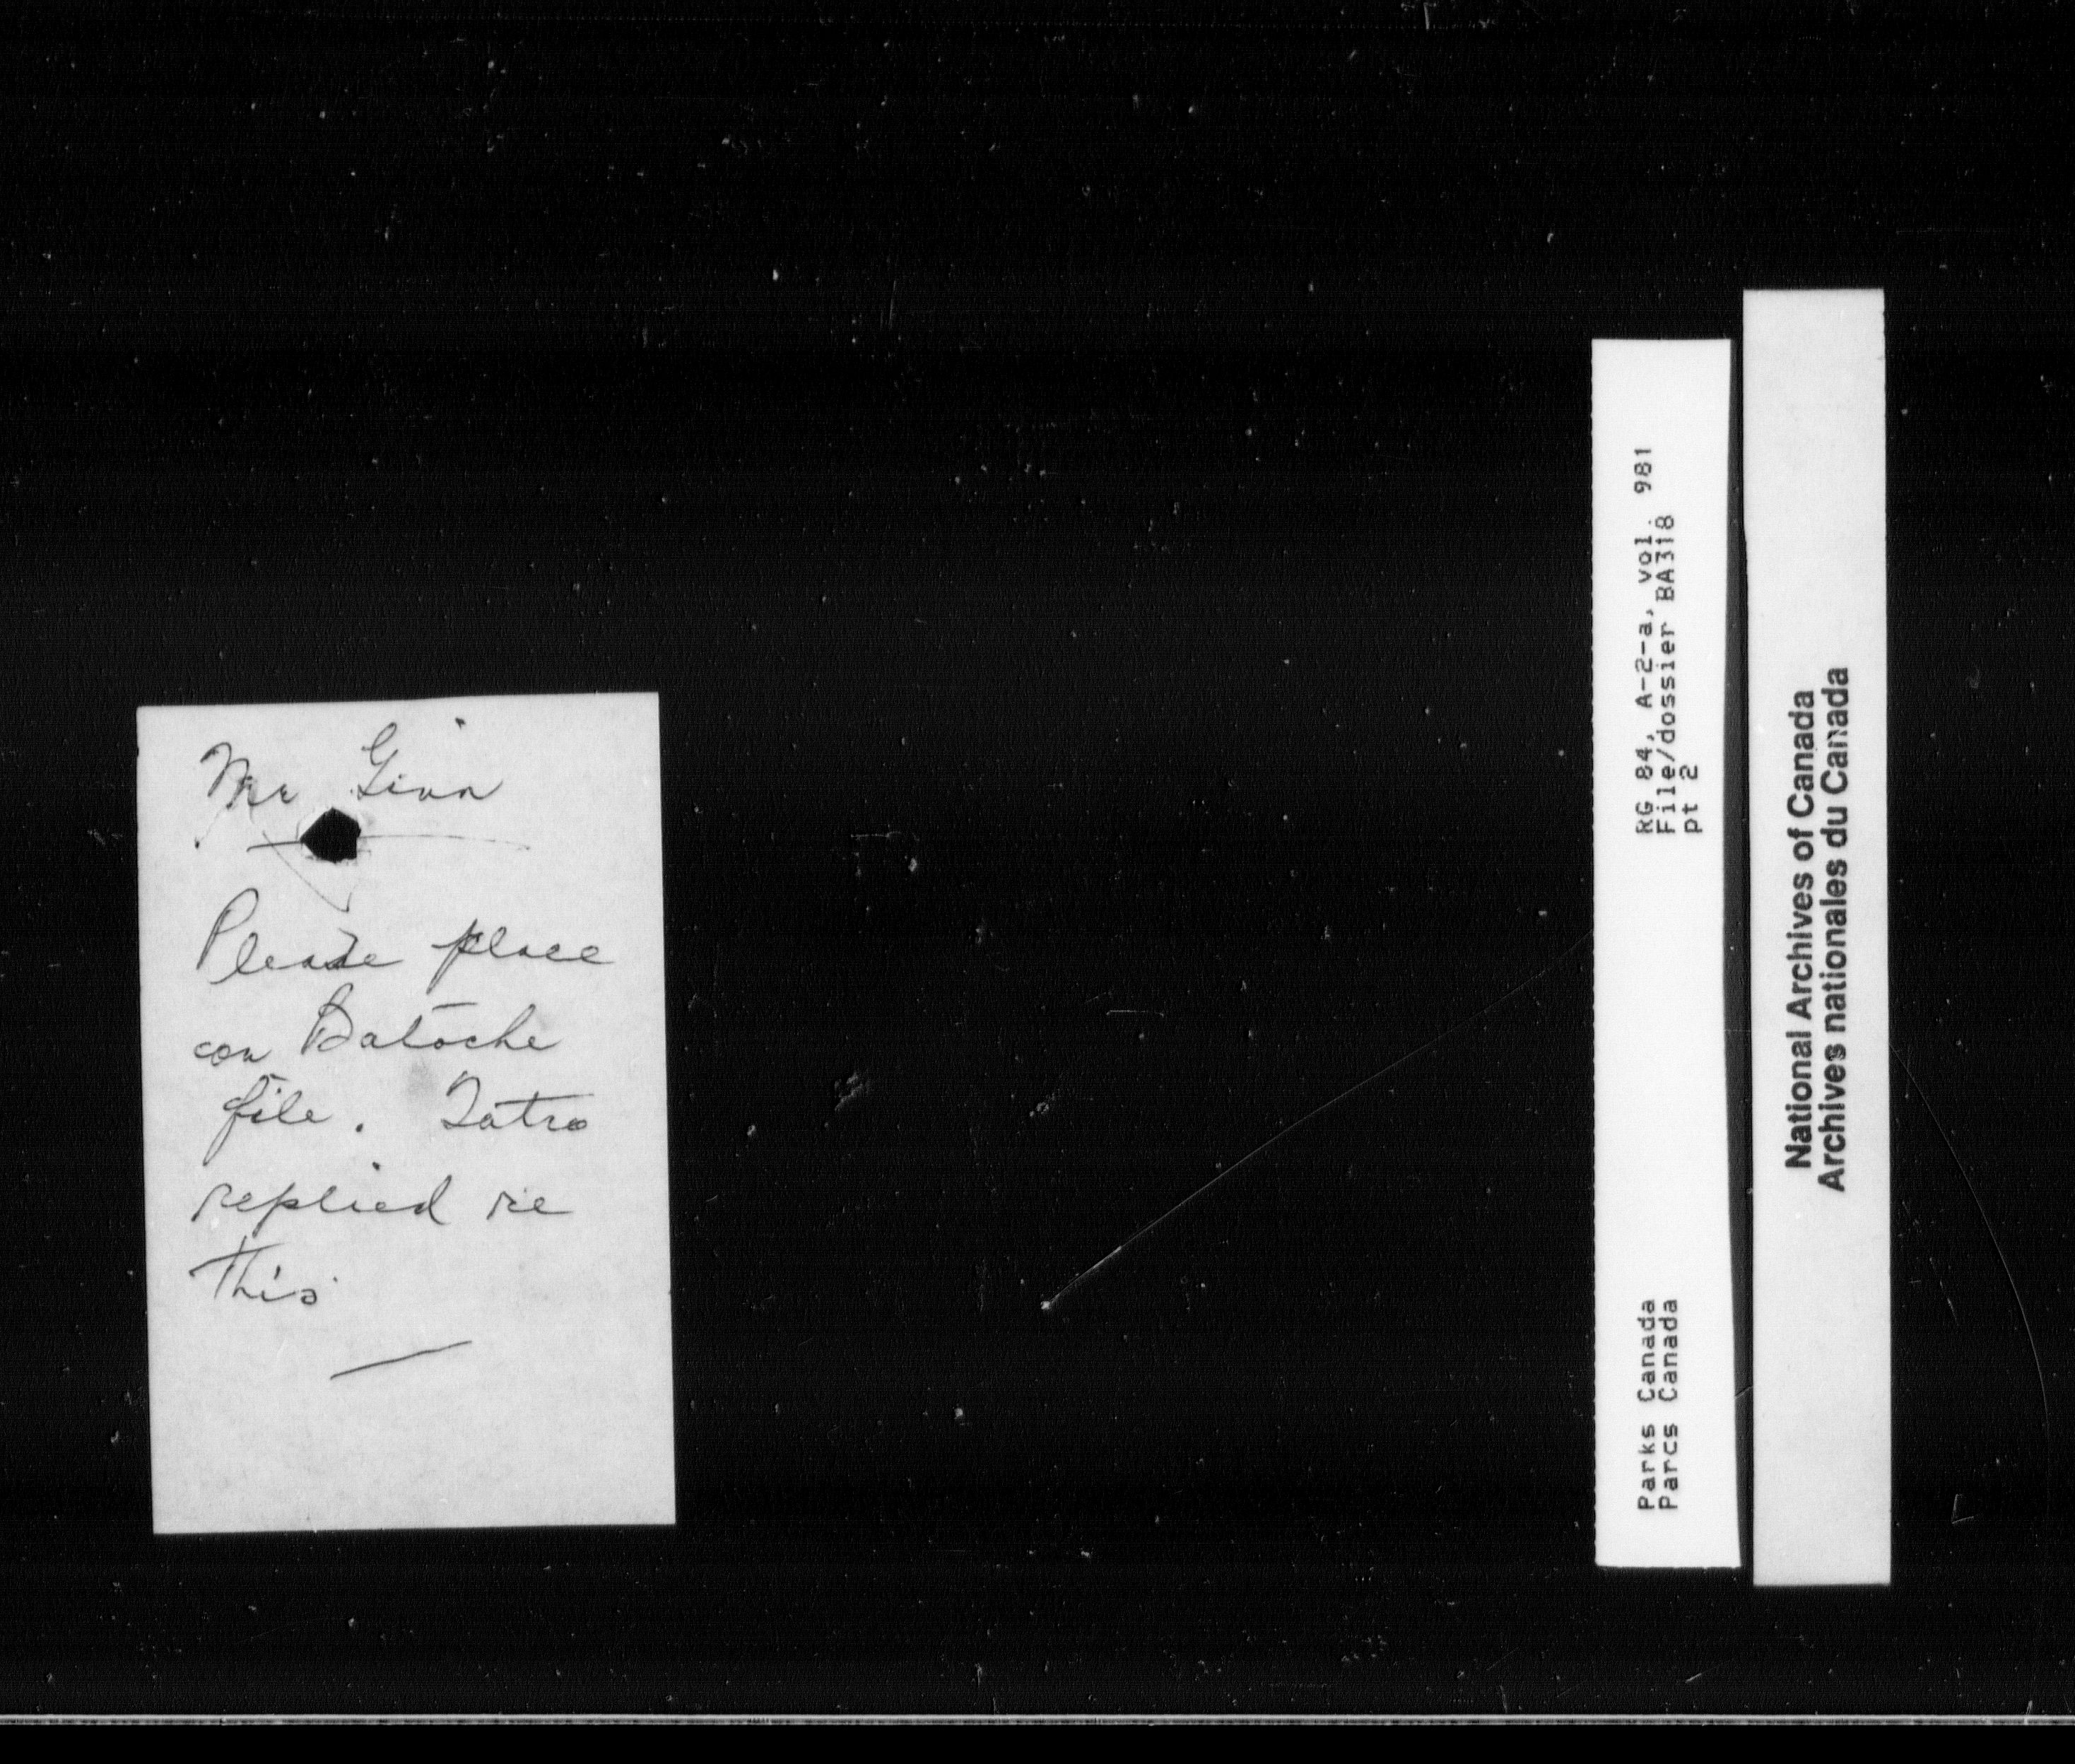 Mr Ginn
Please place
on Batoche
file. Tatro
replied re
this
RG 84, A-2-a, vol. 981
File/dossier BA318
pt 2
Parks Canada
Parcs Canada
National Archives of Canada
Archives nationales du Canada